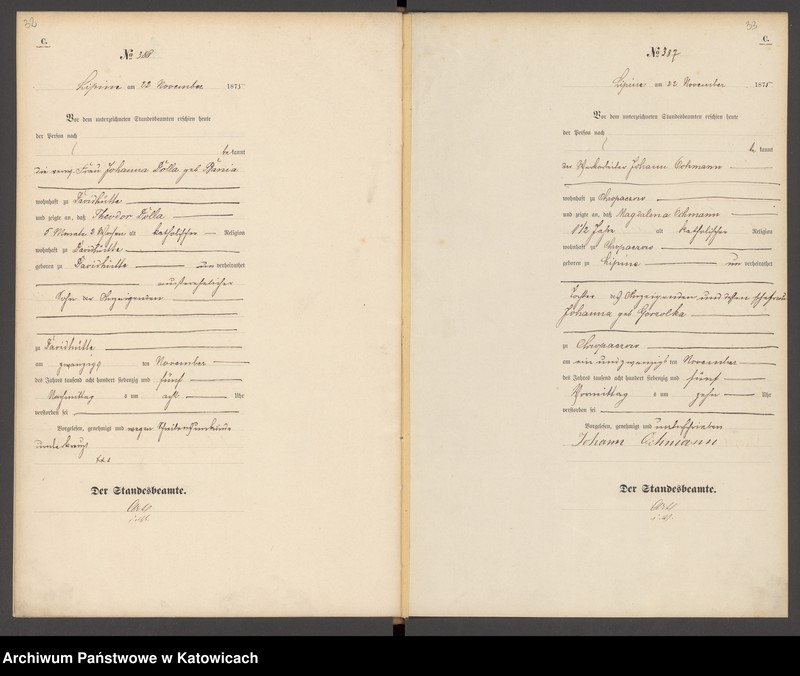 32
C.
№ 316
Lipine am 22 November 1875
Vor dem unterzeichneten Standesbeamten erschien heute
der Person nach
be kannt
die verw. Frau Johanna Dolla geb
wohnhaft zu Davidhütte
und zeigte an, daß Theodor Dolla
5 Monate 2 Wochen alt katholischer Religion
wohnhaft zu Davidhütte
geboren zu Davidhütte un verheirathet
außerehelicher
Sohn der Anzeigenden
zu Davidhütte
am zwanzigs ten November
des Jahres tausend acht hundert siebenzig und fünf
Nachmittag s um acht Uhr
verstorben sei
Vorgelesen, genehmigt und wegen
Der Standesbeamte.
33
C.
№ 317
Lipine am 22 November 1875
Vor dem unterzeichneten Standesbeamten erschien heute
der Person nach
be kannt
der Johann Ochmann
wohnhaft zu Chropaczow
und zeigte an, daß Magdalena Ochmann
1 1/2 Jahr alt katholischer Religion
wohnhaft zu Chropaczow
geboren zu Lipine un verheirathet
Tochter des Anzeigenden und dessen Ehefrau
Johanna geb Gorzolka
zu Chropaczow
am ein und zwanzigs ten November
des Jahres tausend acht hundert siebenzig und fünf
Vormittag s um zehn Uhr
verstorben sei
Vorgelesen, genehmigt und unterschrieben
Johann Ochmann
Der Standesbeamte.
Archiwum Państwowe w Katowicach